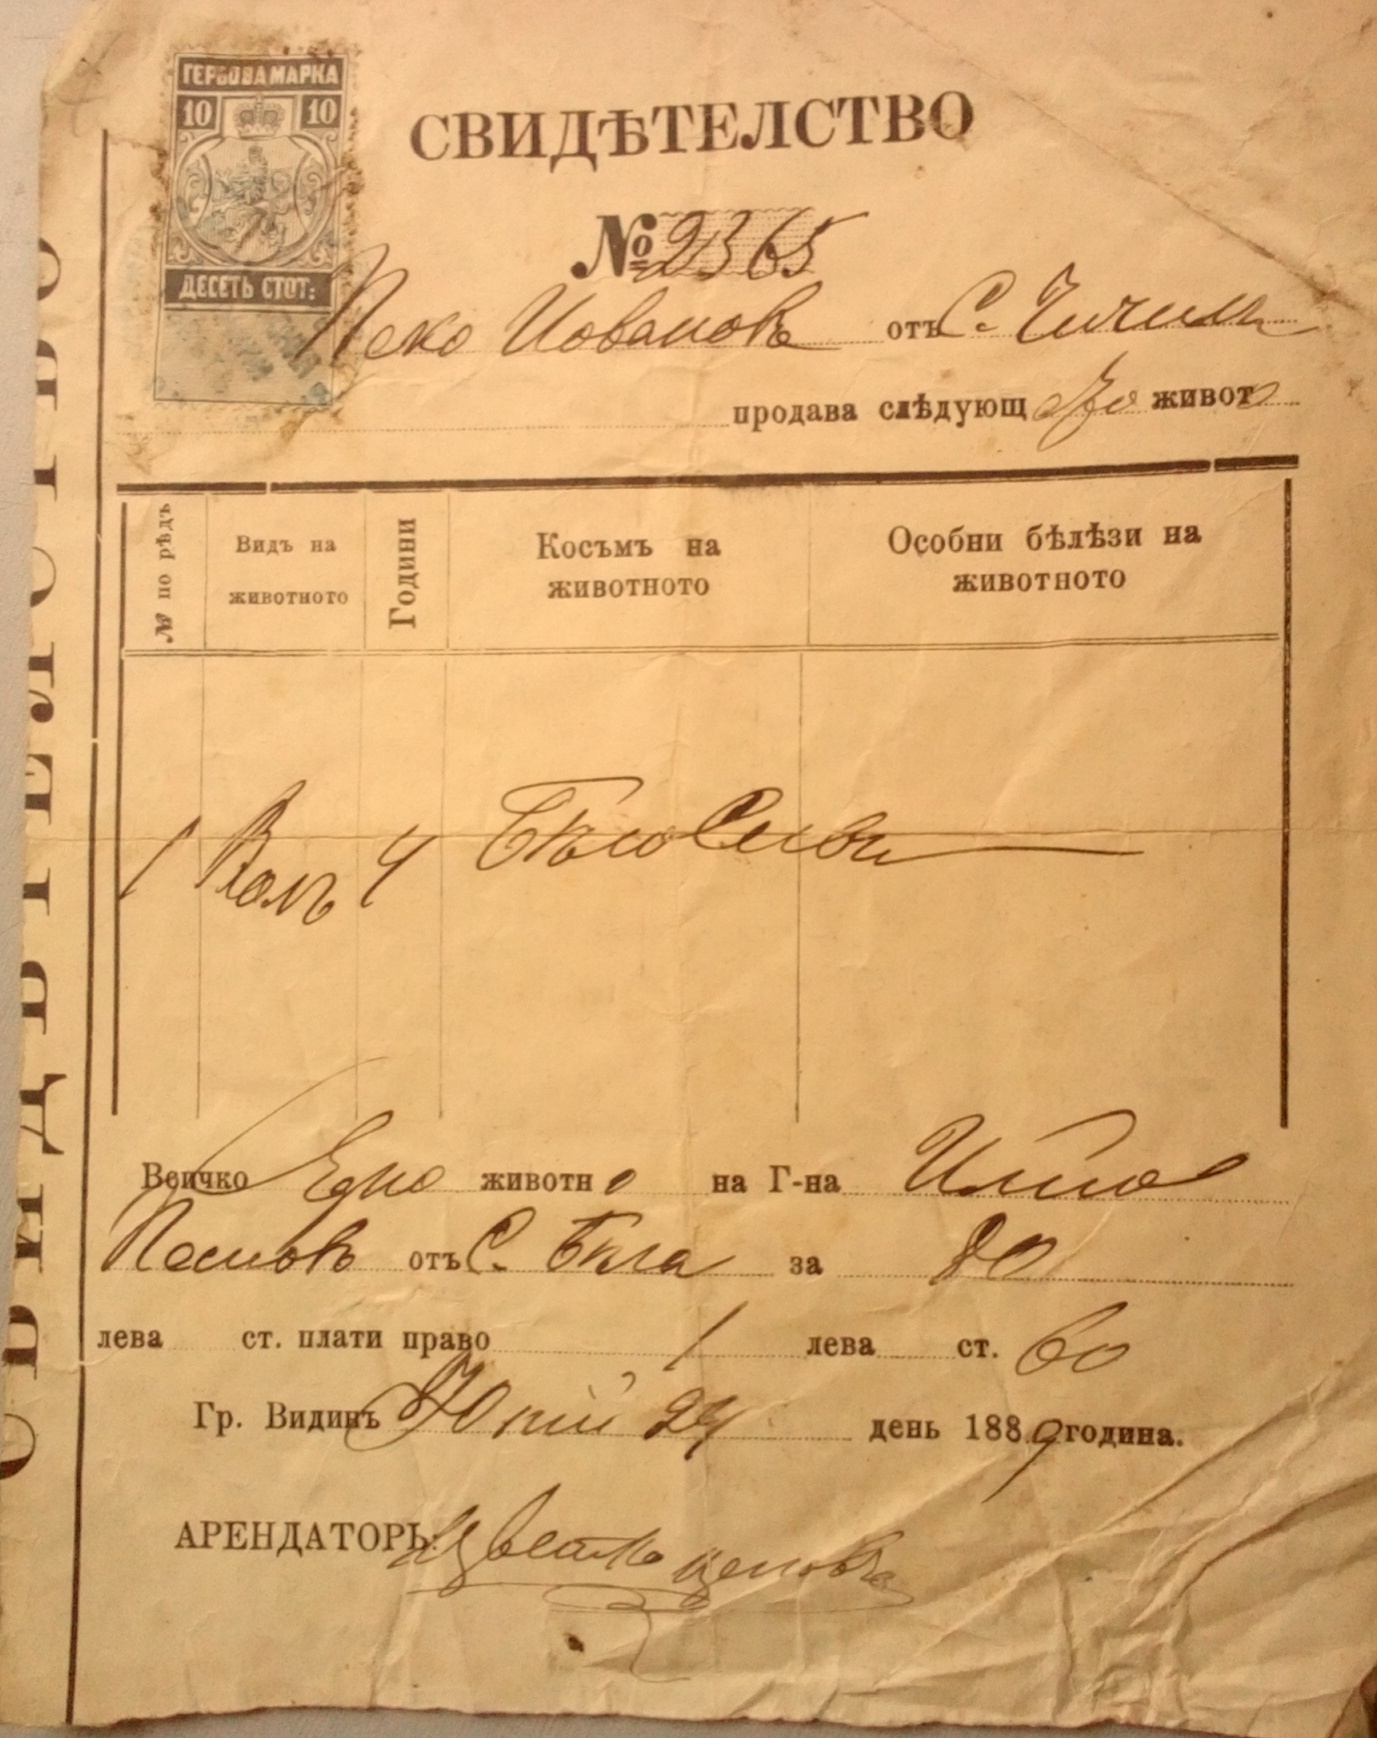 ГЕРБОВА МАРКА
10 10
ДЕСЕТЬ СТОТ:
СВИДѢТЕЛСТВО
СВИДѢТЕЛСТВО
№ 2365
Пеко Иовановъ отъ С. Чичилъ
продава слѣдующ ото живот о
№ по рѣдъ
Видъ на животното
Години
Косъмъ на животното
Особни бѣлѣзи на животното
1 Волъ 4 Бѣло Сиви
Всичко Едно животн о на Г-на Илио
отъ С. Бѣла за 80
лева ст. плати право 1 лева ст. 60
Гр. Видинъ Юний 24 день 1889 година.
АРЕНДАТОРЬ: Ценовъ